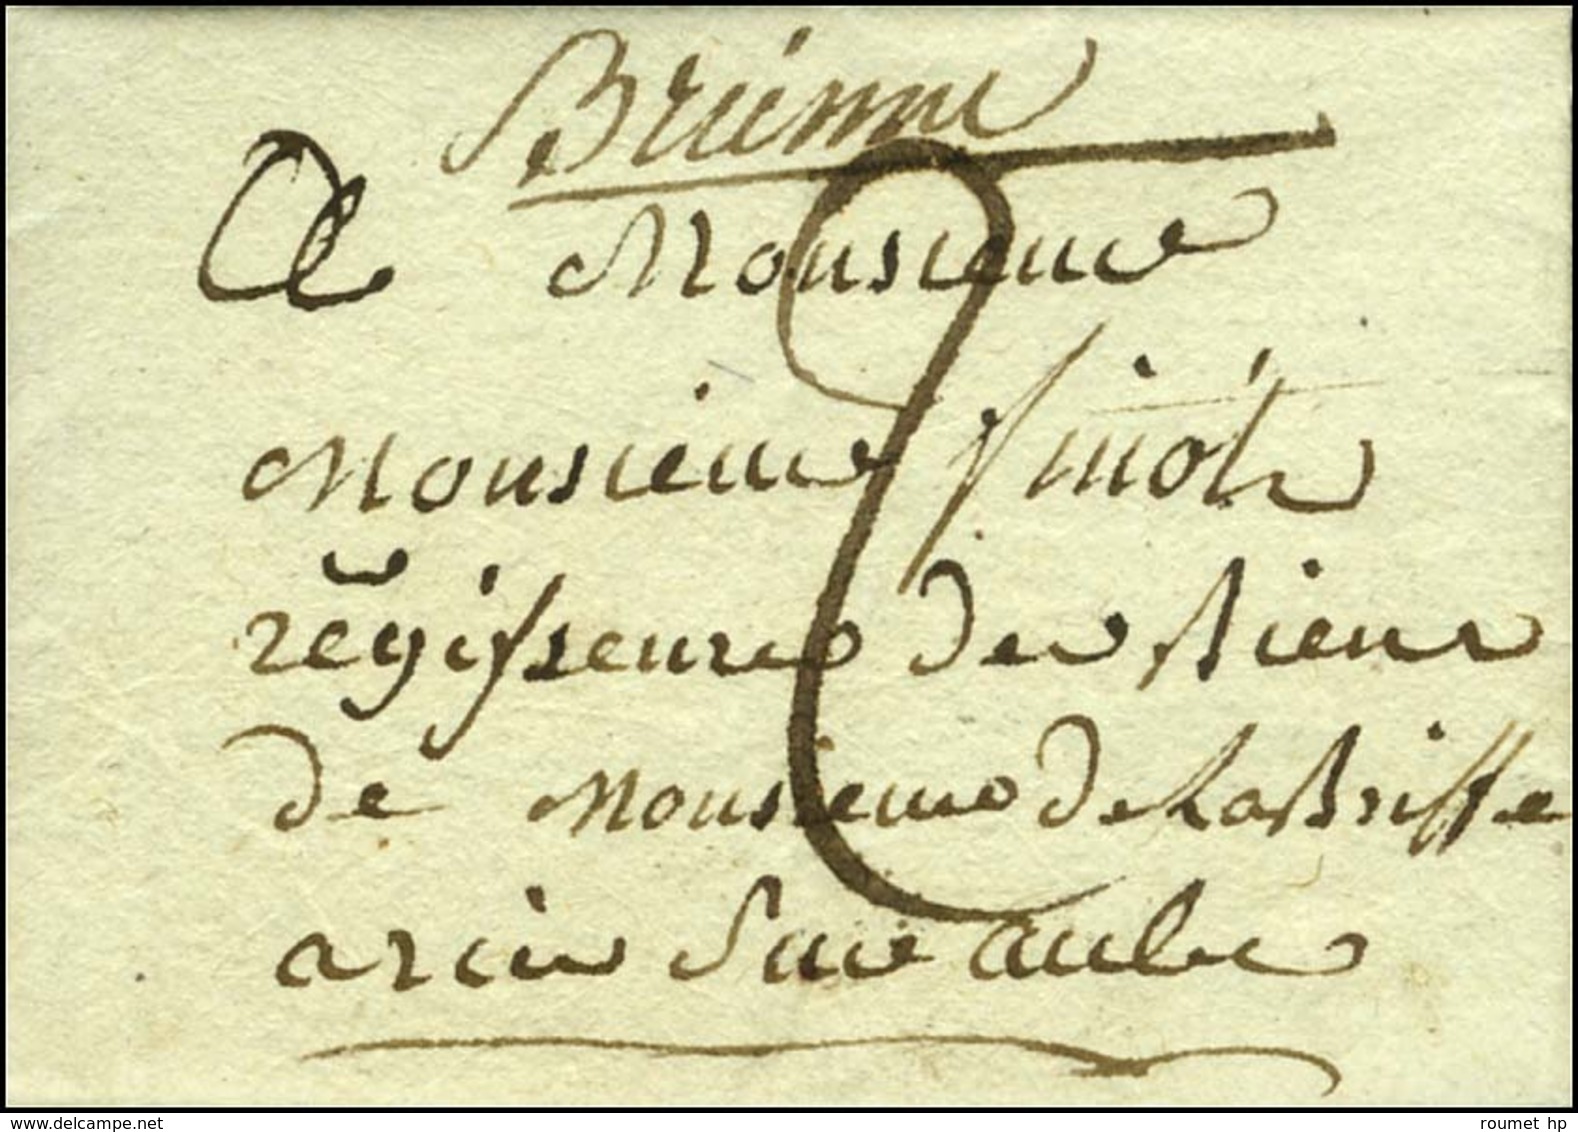 Brienne
A Monsieur
2
Monsieur finot
régisseur des Biens
de Monsieur de la Briffe
arcis Sur aube
roumet hp